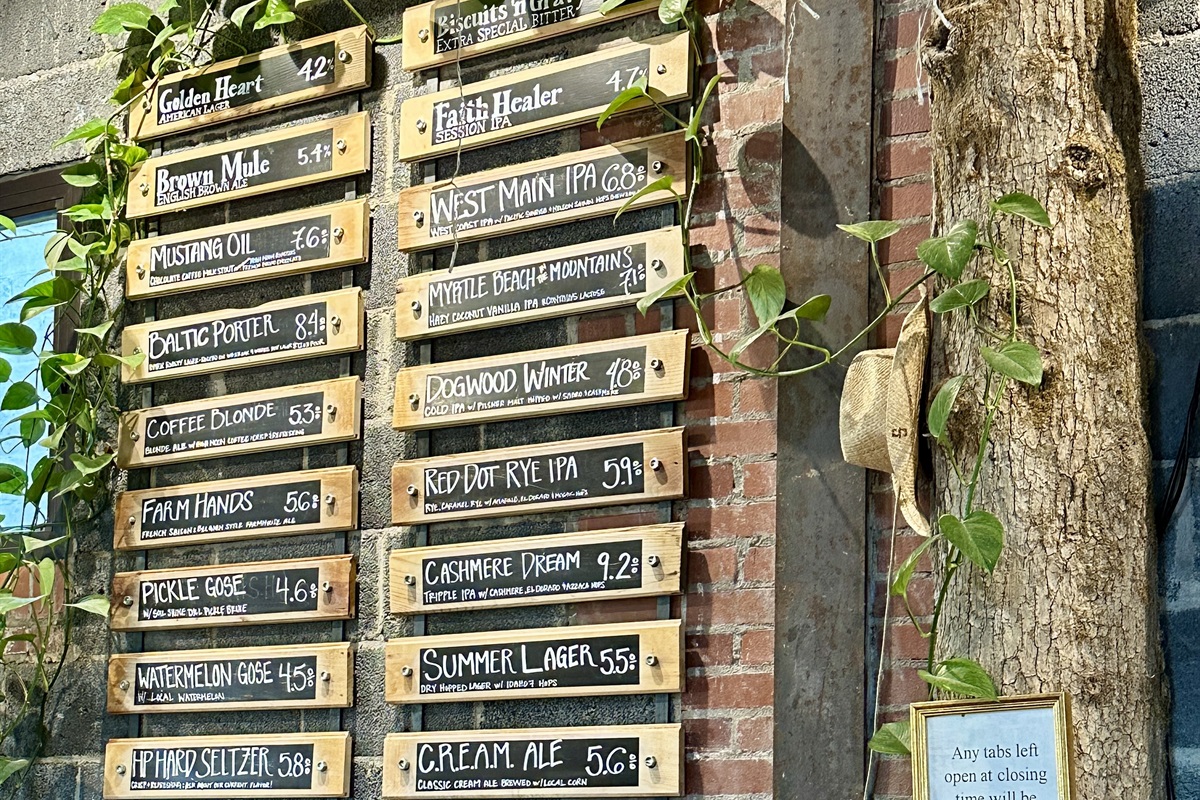 Golden Heart 4.2%
AMERICAN LAGER
Brown Mule 5.4%
ENGLISH BROWN ALE
MUSTANG OIL 7.6%
CHOCOLATE COFFEE MILK STOUT
BALTIC PORTER 8.4%
COFFEE BLONDE 5.3%
BLONDE ALE W/ HIGH MOON COFFEE CRISP & REFRESHING
FARM HANDS 5.6%
FRENCH SAISON & BELGIAN STYLE FARMHOUSE ALE
PICKLE GOSE 4.6%
W/ SOUL SHINE DILL PICKLE BRINE
WATERMELON GOSE 4.5%
W/ LOCAL WATERMELON
HP HARD SELTZER 5.8%
CRISP & REFRESHING: ASK ABOUT OUR CURRENT FLAVOR!
Biscuits 'n
EXTRA SPECIAL BITTER
Faith Healer 4.7%
SESSION IPA
WEST MAIN IPA 6.8%
WEST COAST IPA W/ PACIFIC SUNRISE & NELSON SAUVIN HOPS
MYRTLE BEACH OF THE MOUNTAINS 7.1%
HAZY COCONUT VANILLA IPA *CONTAINS LACTOSE
DOGWOOD WINTER 4.8%
COLD IPA W/ PILSNER MALT HOPPED W/ SABRO & CASHMERE
RED DOT RYE IPA 5.9%
RYE, CARAMEL RYE W/ AMARILLO, EL DORADO & MOSAIC HOPS
CASHMERE DREAM 9.2%
TRIPPLE IPA W/ CASHMERE, EL DORADO & AZZACA HOPS
SUMMER LAGER 5.5%
DRY HOPPED LAGER W/ IDAHO 7 HOPS
C.R.E.A.M. ALE 5.6%
CLASSIC CREAM ALE BREWED W/ LOCAL CORN
Any tabs left
open at closing
time will be